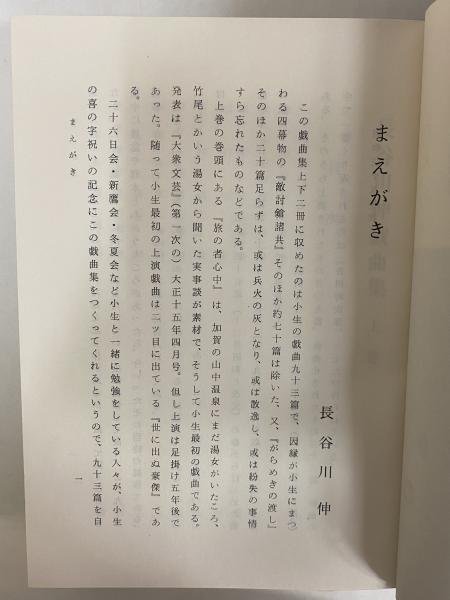 まえがき
長谷川伸
この戯曲集上下二冊に収めたのは小生の戯曲九十三篇で、因縁が小生にまつ
わる四幕物の『敵討鎗諸共』そのほか約七十篇は除いた、又、『がらめきの渡し』
そのほか二十篇足らずは、或は兵火の灰となり、或は散逸し、或は紛失の事情
すら忘れたものなどである。
上巻の巻頭にある『旅の者心中』は、加賀の山中温泉にまだ湯女がいたころ、
竹尾とかいう湯女から聞いた実事談が素材で、そうして小生最初の戯曲である。
発表は『大衆文芸』（第一次の）大正十五年四月号。但し上演は足掛け五年後で
あった。随って小生最初の上演戯曲は二ツ目に出ている『世に出ぬ豪傑』であ
る。
二十六日会・新鷹会・冬夏会など小生と一緒に勉強をしている人々が、小生
の喜の字祝いの記念にこの戯曲集をつくってくれるというので、九十三篇を自
まえがき
一